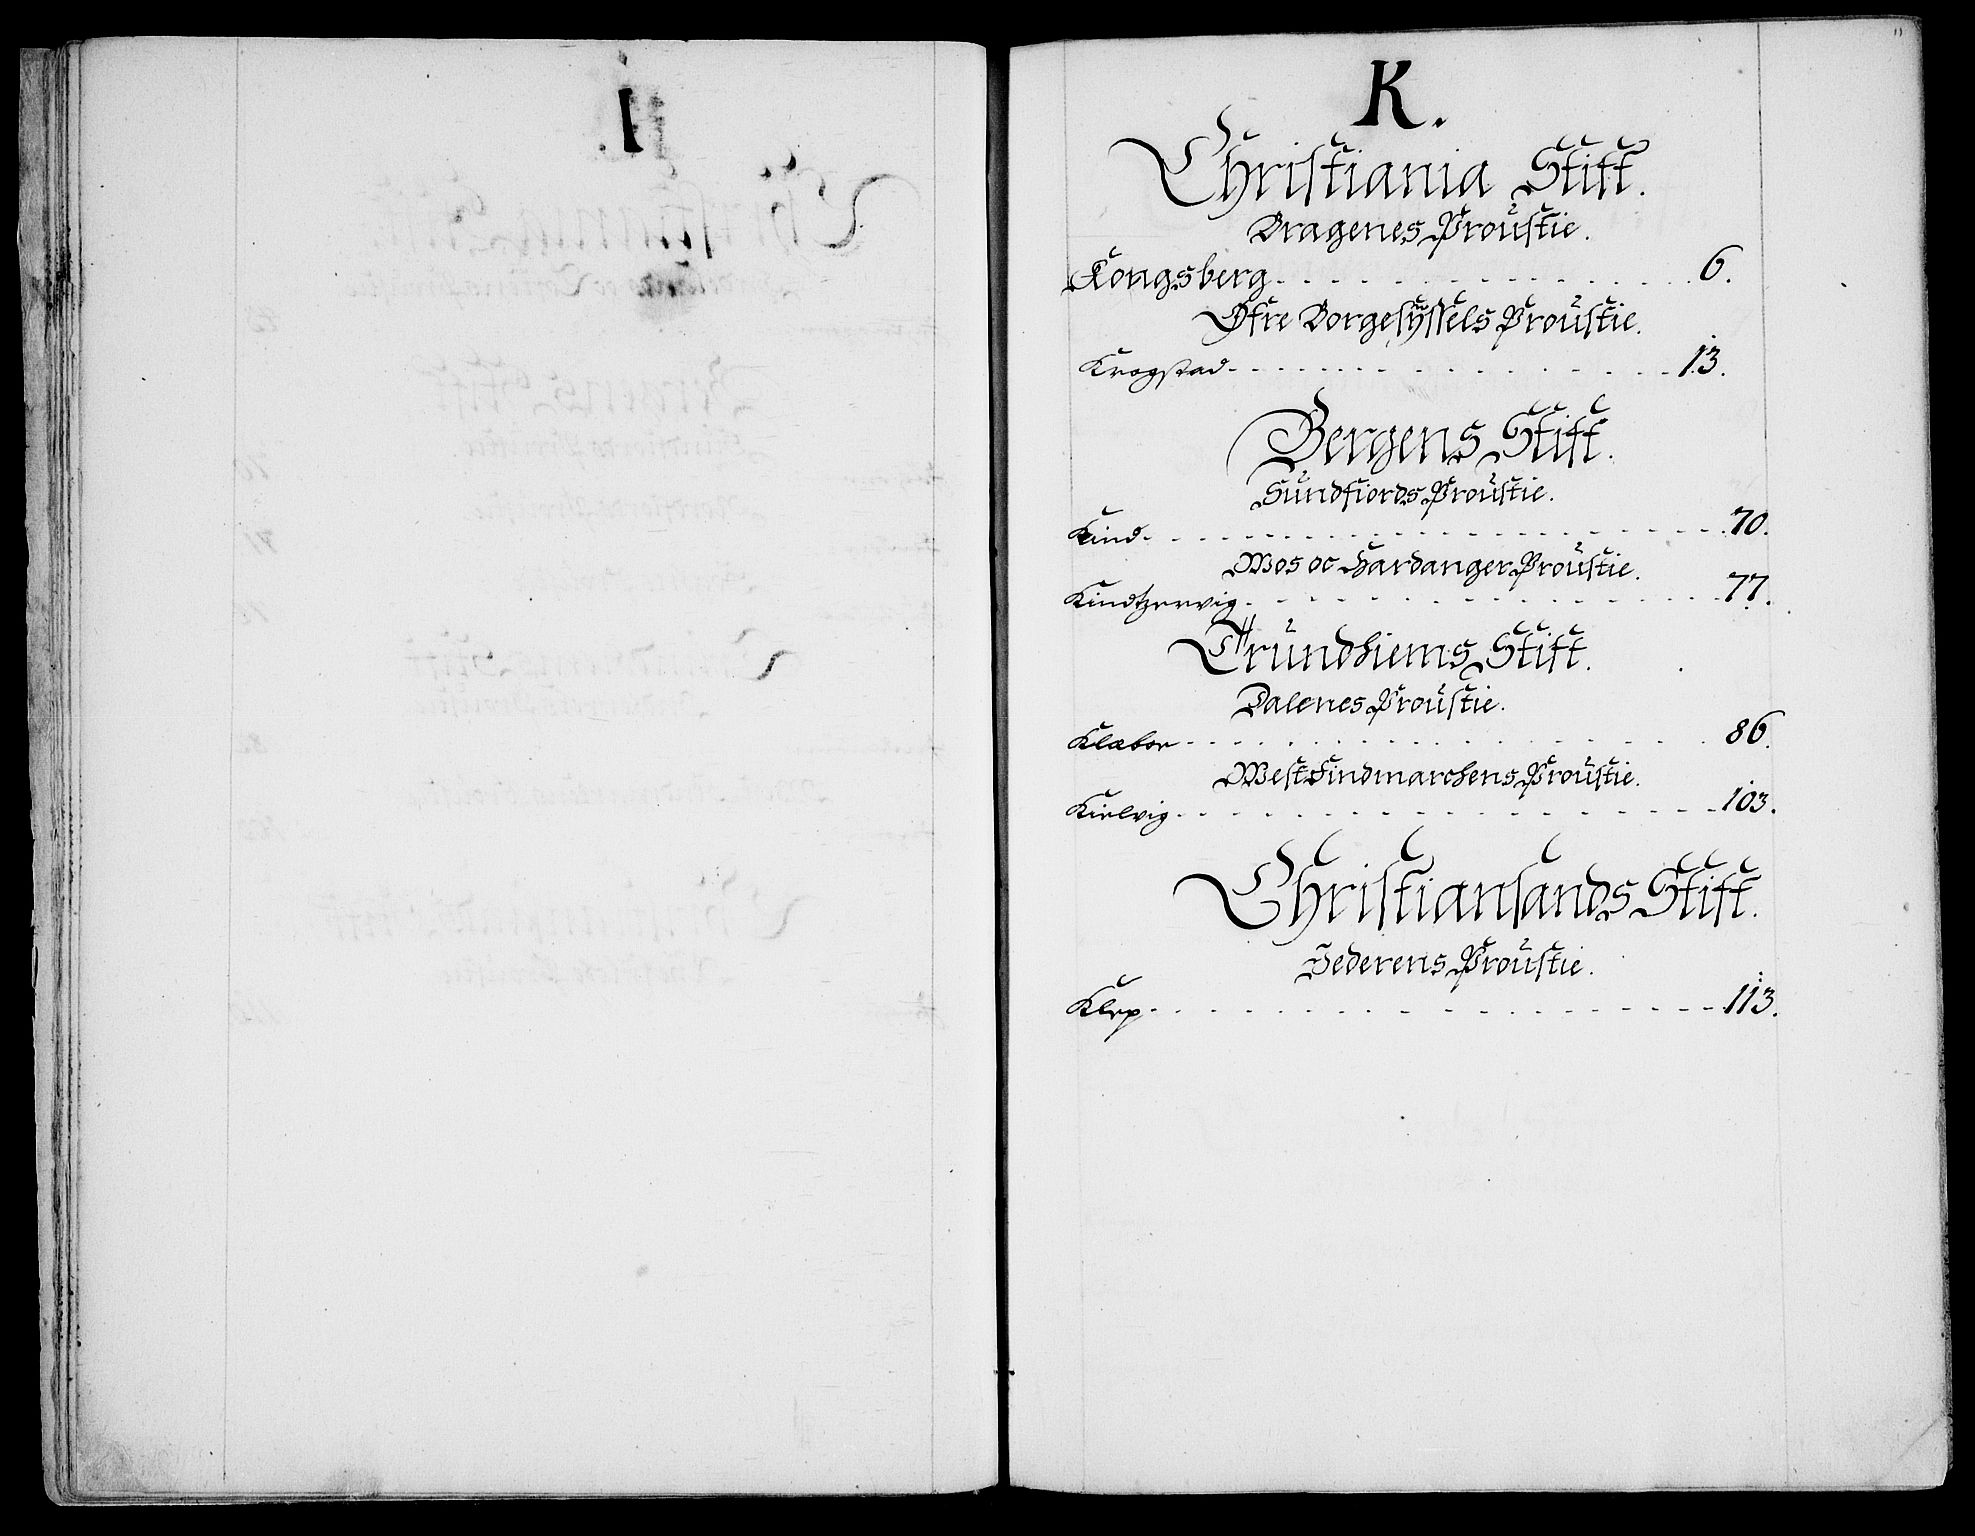 I.
11
K.
Christiania Stift.
Bragenes Proustie.
Kongsberg. 6.
Øfre Borgesÿssels Proustie.
Krogstad 13.
Bergens Stift.
Sundfiords Proustie.
Kind 70.
Wos oc Hardanger Proustie.
Kindtzervig 77.
Trundhiems Stift.
Dalenes Proustie.
Klæboe 86.
West Findmarchens Proustie.
Kielvig 103.
Christiansands Stift.
Jederens Proustie.
Klep 113.